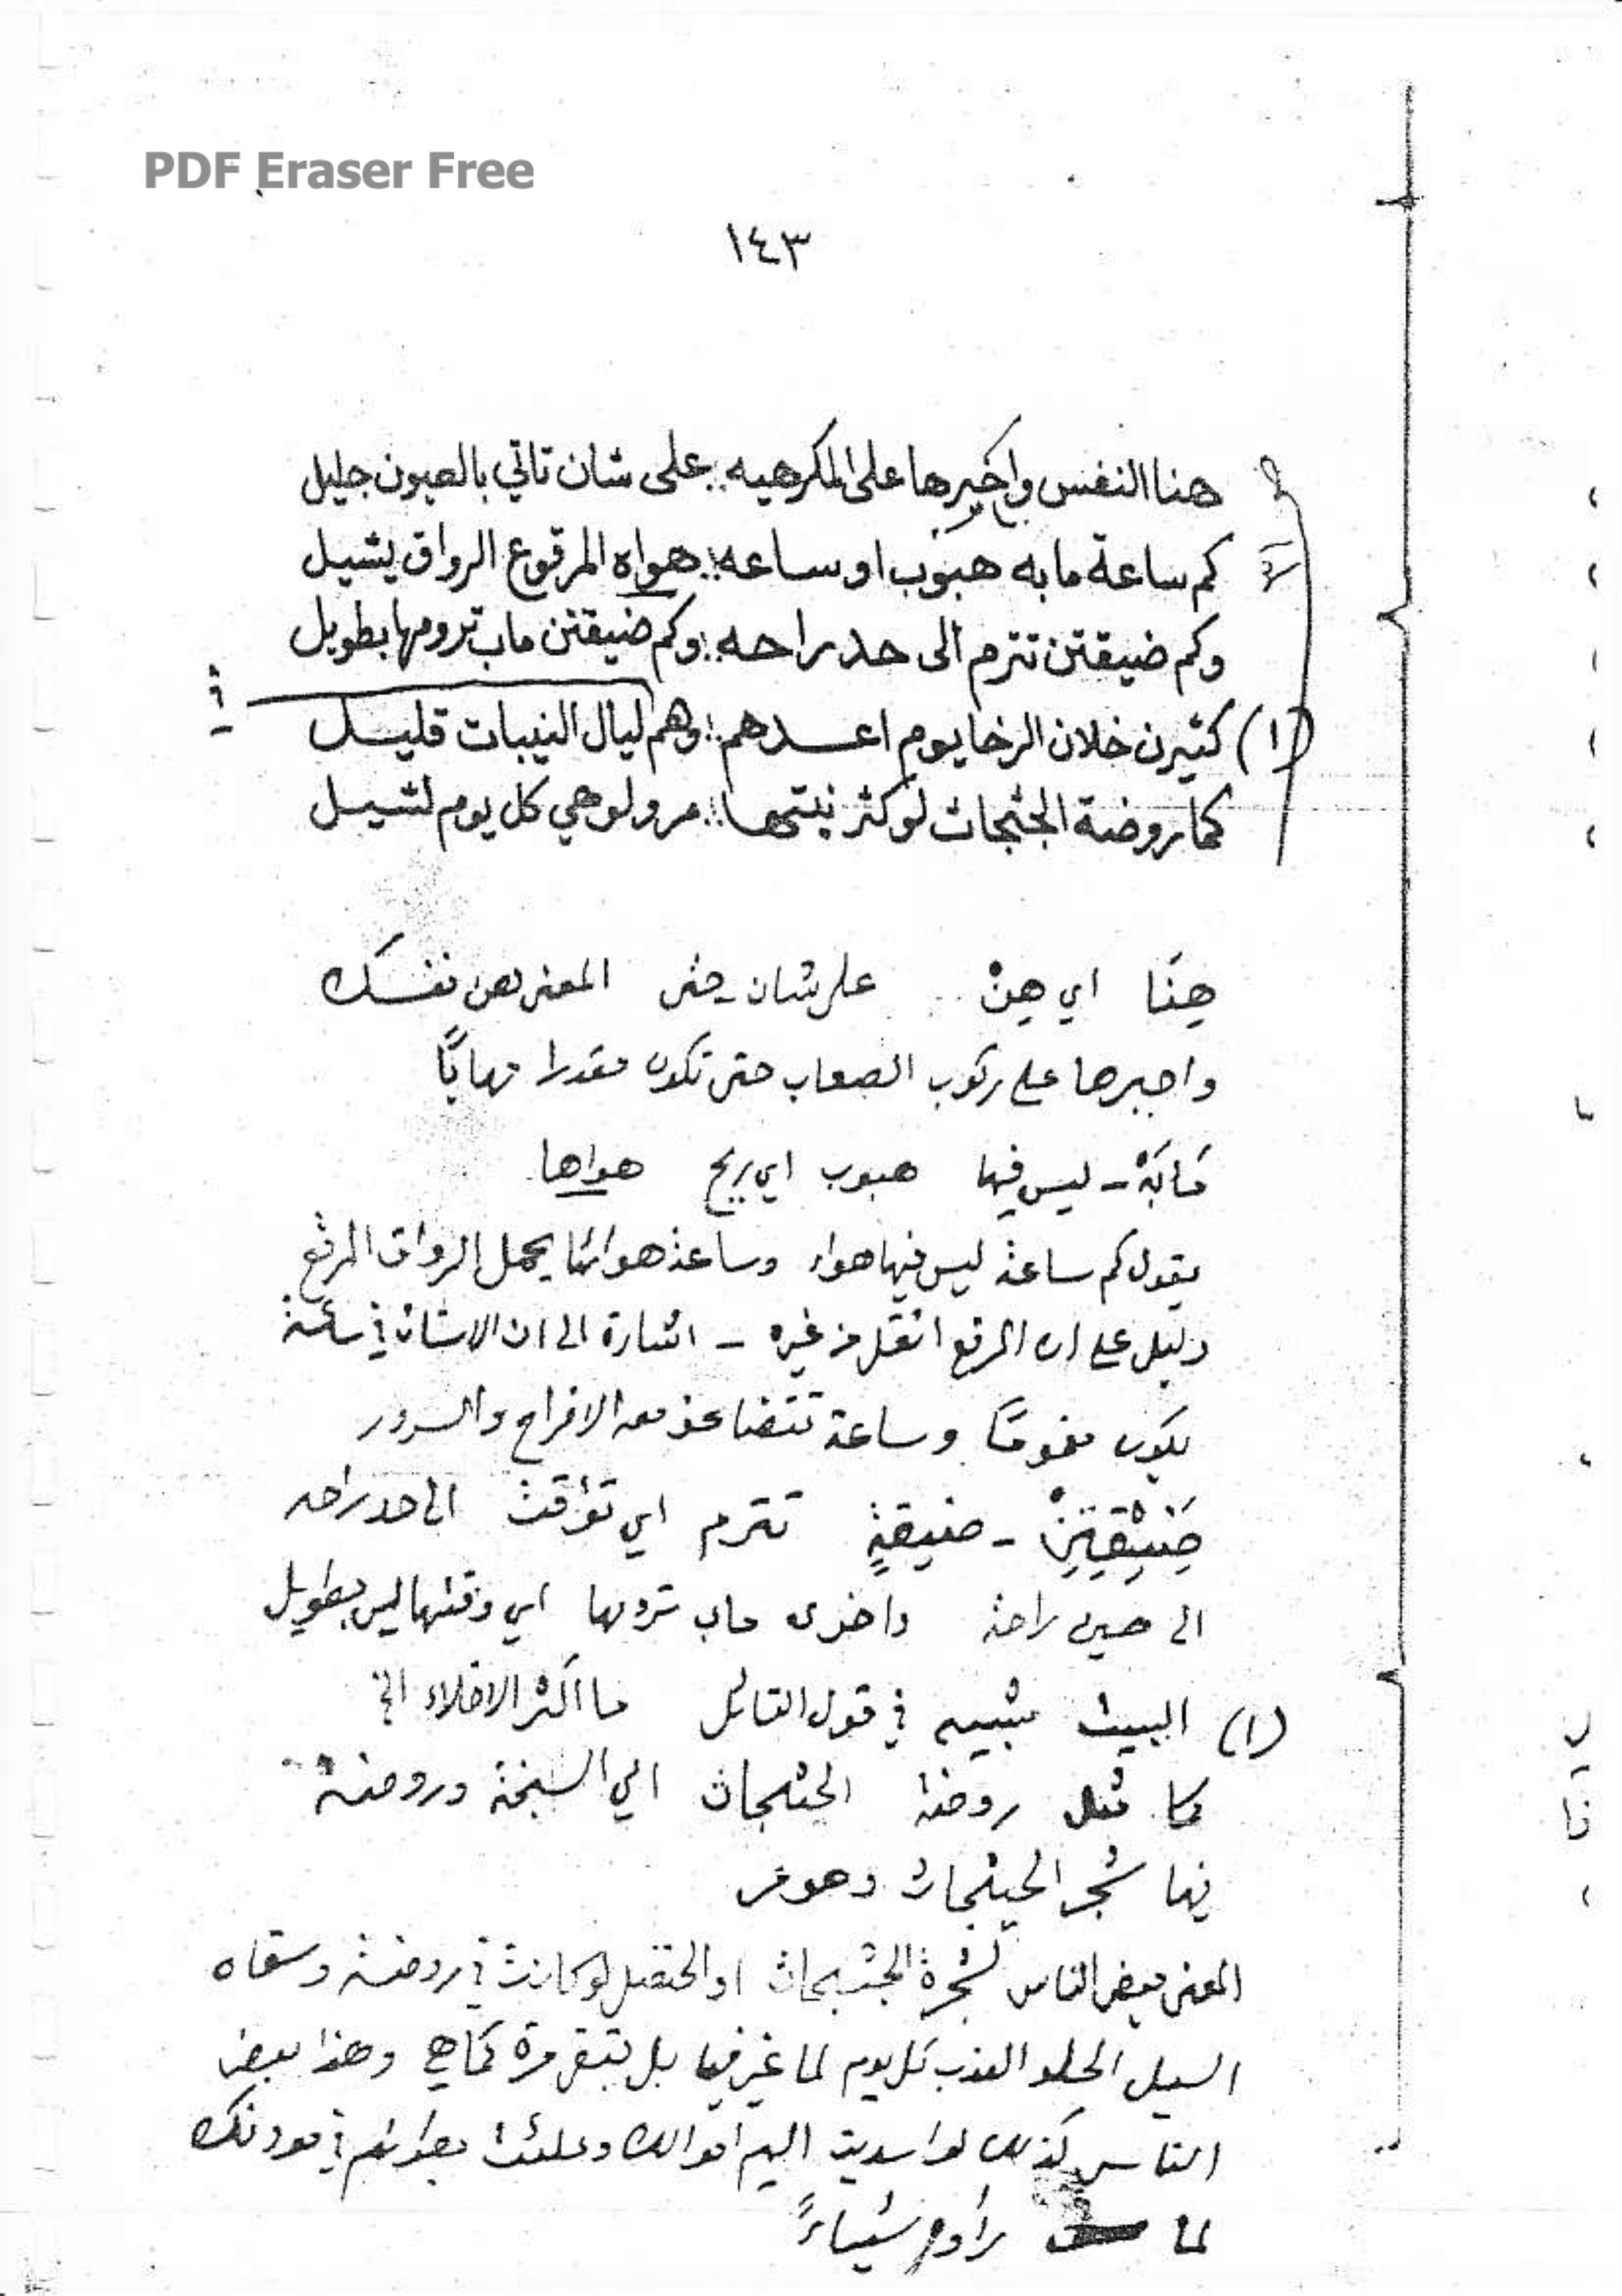 PDF Eraser Free
١٤٣
هنا النفس واجبرها على المكرهيه :. على شان تاتي بالعيون جليل
كم ساعة مابه هبوب او ساعه :. هواه المرقوع الرواق يشيل
وكم ضيقتن تترم الى حد راحه :. وكم ضيقتن ماب ترومها بطويل
(١) كثيرن خلان الرخا يوم اعدهم :. وهم ليال النيبات قليل
كما روضة الجثجاث لو كثر نبتها :. مر ولو هي كل يوم لتسيل
هِنّا اي هِنْ على شان - حتى المعنى هن نفسك
واجبرها على ركوب الصعاب حتى تكون مقدرا مهابًا
مَابَهْ - ليس فيها هبوب اي ريح هواها
يقول كم ساعة ليس فيها هواء وساعة هوائها يحمل الرواق المرقع
دليل على ان المرقع اثقل من غيره - اشارة الى ان الانسان في ساعة
يكون مغمومًا وساعة تتضاعف معه الافراح والسرور
ضَيْقِتِنْ - ضيقةٍ تترم اي تؤقت الى حد راحه
الى حين راحة واخرى ماب ترومها اي وقتها ليس بطويل
(١) البيت شبيه في قول القائل ما اكثر الاخلاء الخ
كما مثل روضة الجثجاث اي السبخة وروضة
فيها شجر الجثجاث وهو مر
المعنى بعض الناس كشجرة الجثجاث او الحنظل لو كانت في روضة وسقاه
السيل الحلو العذب كل يوم لما غير فيها بل تبقى مرة كما هي وهذا بعض
الناس كذلك لو اسديت اليهم اموالك وملئت بطونهم في مودتك
لما زادهم شيئاً